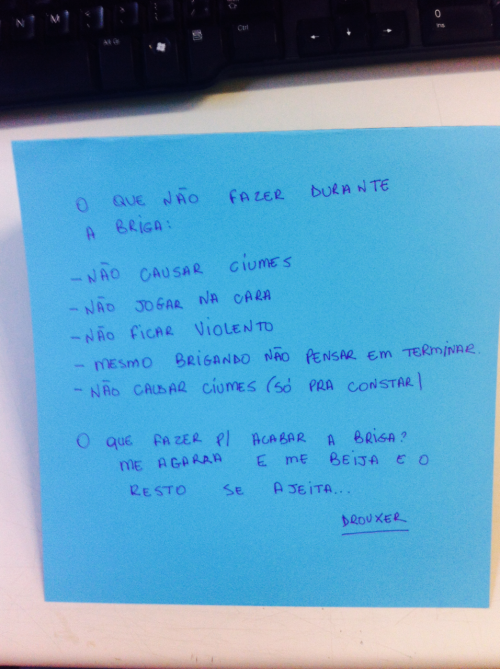 O QUE NÃO FAZER DURANTE
A BRIGA:
- NÃO CAUSAR CÍUMES
- NÃO JOGAR NA CARA
- NÃO FICAR VIOLENTO
- MESMO BRIGANDO NÃO PENSAR EM TERMINAR.
- NÃO CAUSAR CÍUMES (SÓ PRA CONSTAR)
O QUE FAZER P/ ACABAR A BRIGA?
ME AGARRA E ME BEIJA E O
RESTO SE AJEITA...
DROUXER
N
M
Alt Gr
Ctrl
0
Ins